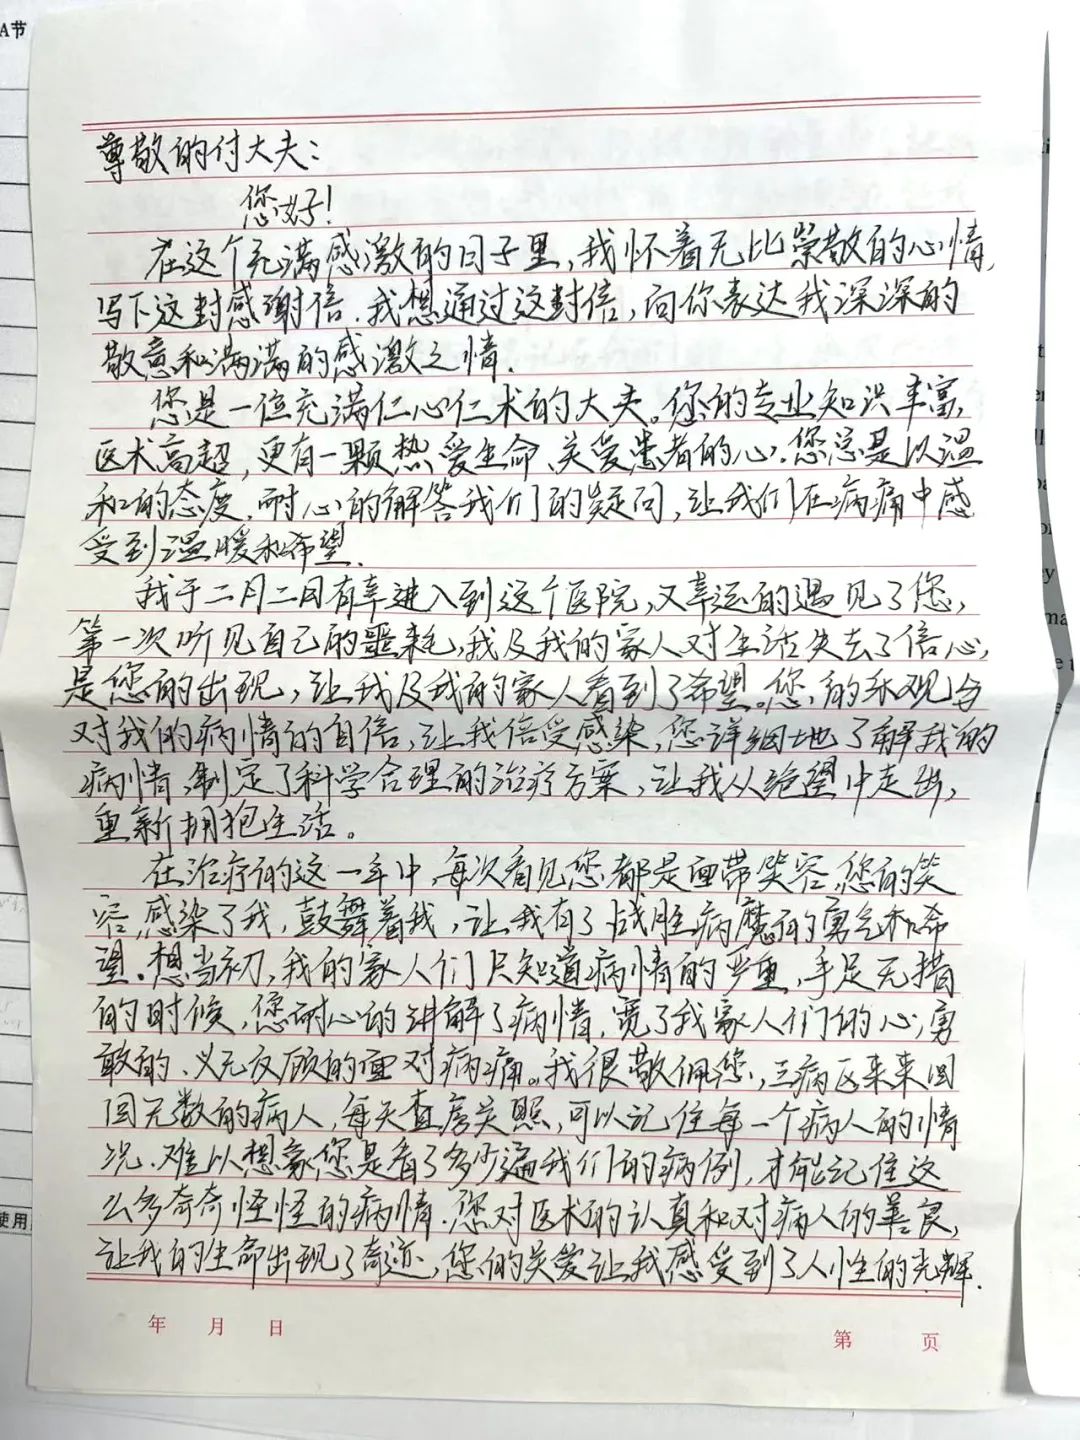 A节
尊敬的付大夫：
您好！
在这个充满感激的日子里，我怀着无比崇敬的心情，
写下这封感谢信．我想通过这封信，向你表达我深深的
敬意和满满的感激之情．
您是一位充满仁心仁术的大夫。您的专业知识丰富，
医术高超，更有一颗热爱生命、关爱患者的心．您总是以温
和的态度，耐心的解答我们的疑问，让我们在病痛中感
受到温暖和希望．
我于二月二日有幸进入到这个医院，又幸运的遇见了您，
第一次听见自己的噩耗，我及我的家人对生活失去了信心，
是您的出现，让我及我的家人看到了希望。您，的乐观与
对我们的病情的自信，让我倍受感染，您详细地了解我的
病情，制定了科学合理的治疗方案，让我从绝望中走出，
重新拥抱生活。
在治疗的这一年中，每次看见您都是面带笑容，您的笑
容，感染了我，鼓舞着我，让我有了战胜病魔的勇气和希
望．想当初，我的家人们只知道病情的严重，手足无措
的时候，您耐心的讲解了病情，宽了我家人们的心，勇
敢的、义无反顾的面对病痛。我很敬佩您，三病区来来回
回无数的病人，每天查房关照，可以记住每一个病人的情
况．难以想象您是看了多少遍我们的病例，才能记住这
么多奇奇怪怪的病情．您对医术的认真和对病人的善良，
让我的生命出现了奇迹，您的关爱让我感受到了人性的光辉．
年 月 日
第 页
使用